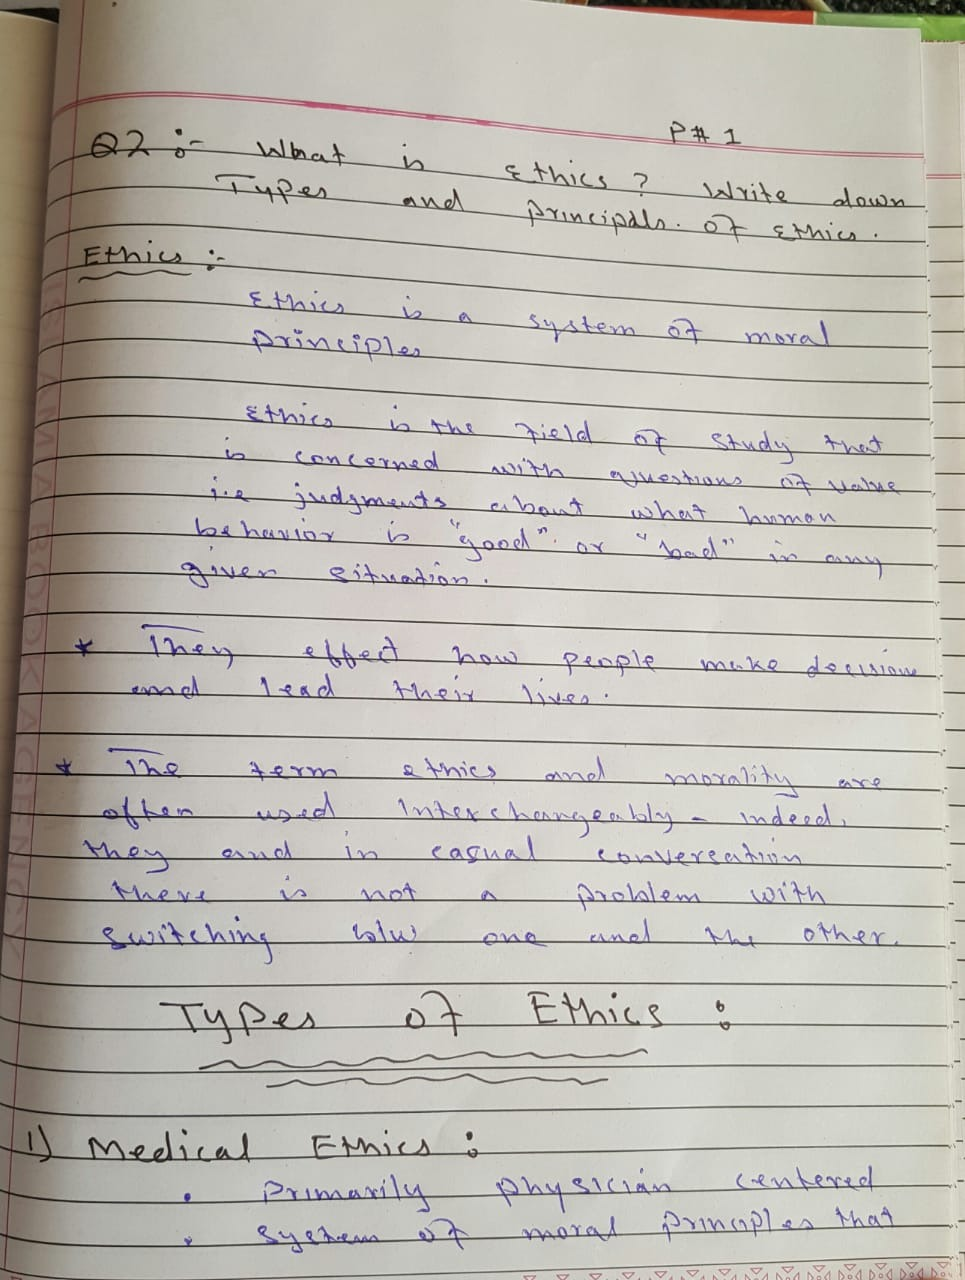 P# 1
Q2 :- What is Ethics? Write down
Types and principals. of Ethics.
Ethics :-
Ethics is a system of moral
principles
Ethics is the field of study that
is concerned with questions of value
i.e judgments about what human
behavior is "good". or "bad" in any
given situation.
* They effect how people make decisions
and lead their lives.
* The term ethics and morality are
often used Interchangeably - indeed,
they and in casual conversation
there is not a problem with
switching b/w one and the other.
Types of Ethics :
1) Medical Ethics :
• Primarily physician centered
• System of moral principles that